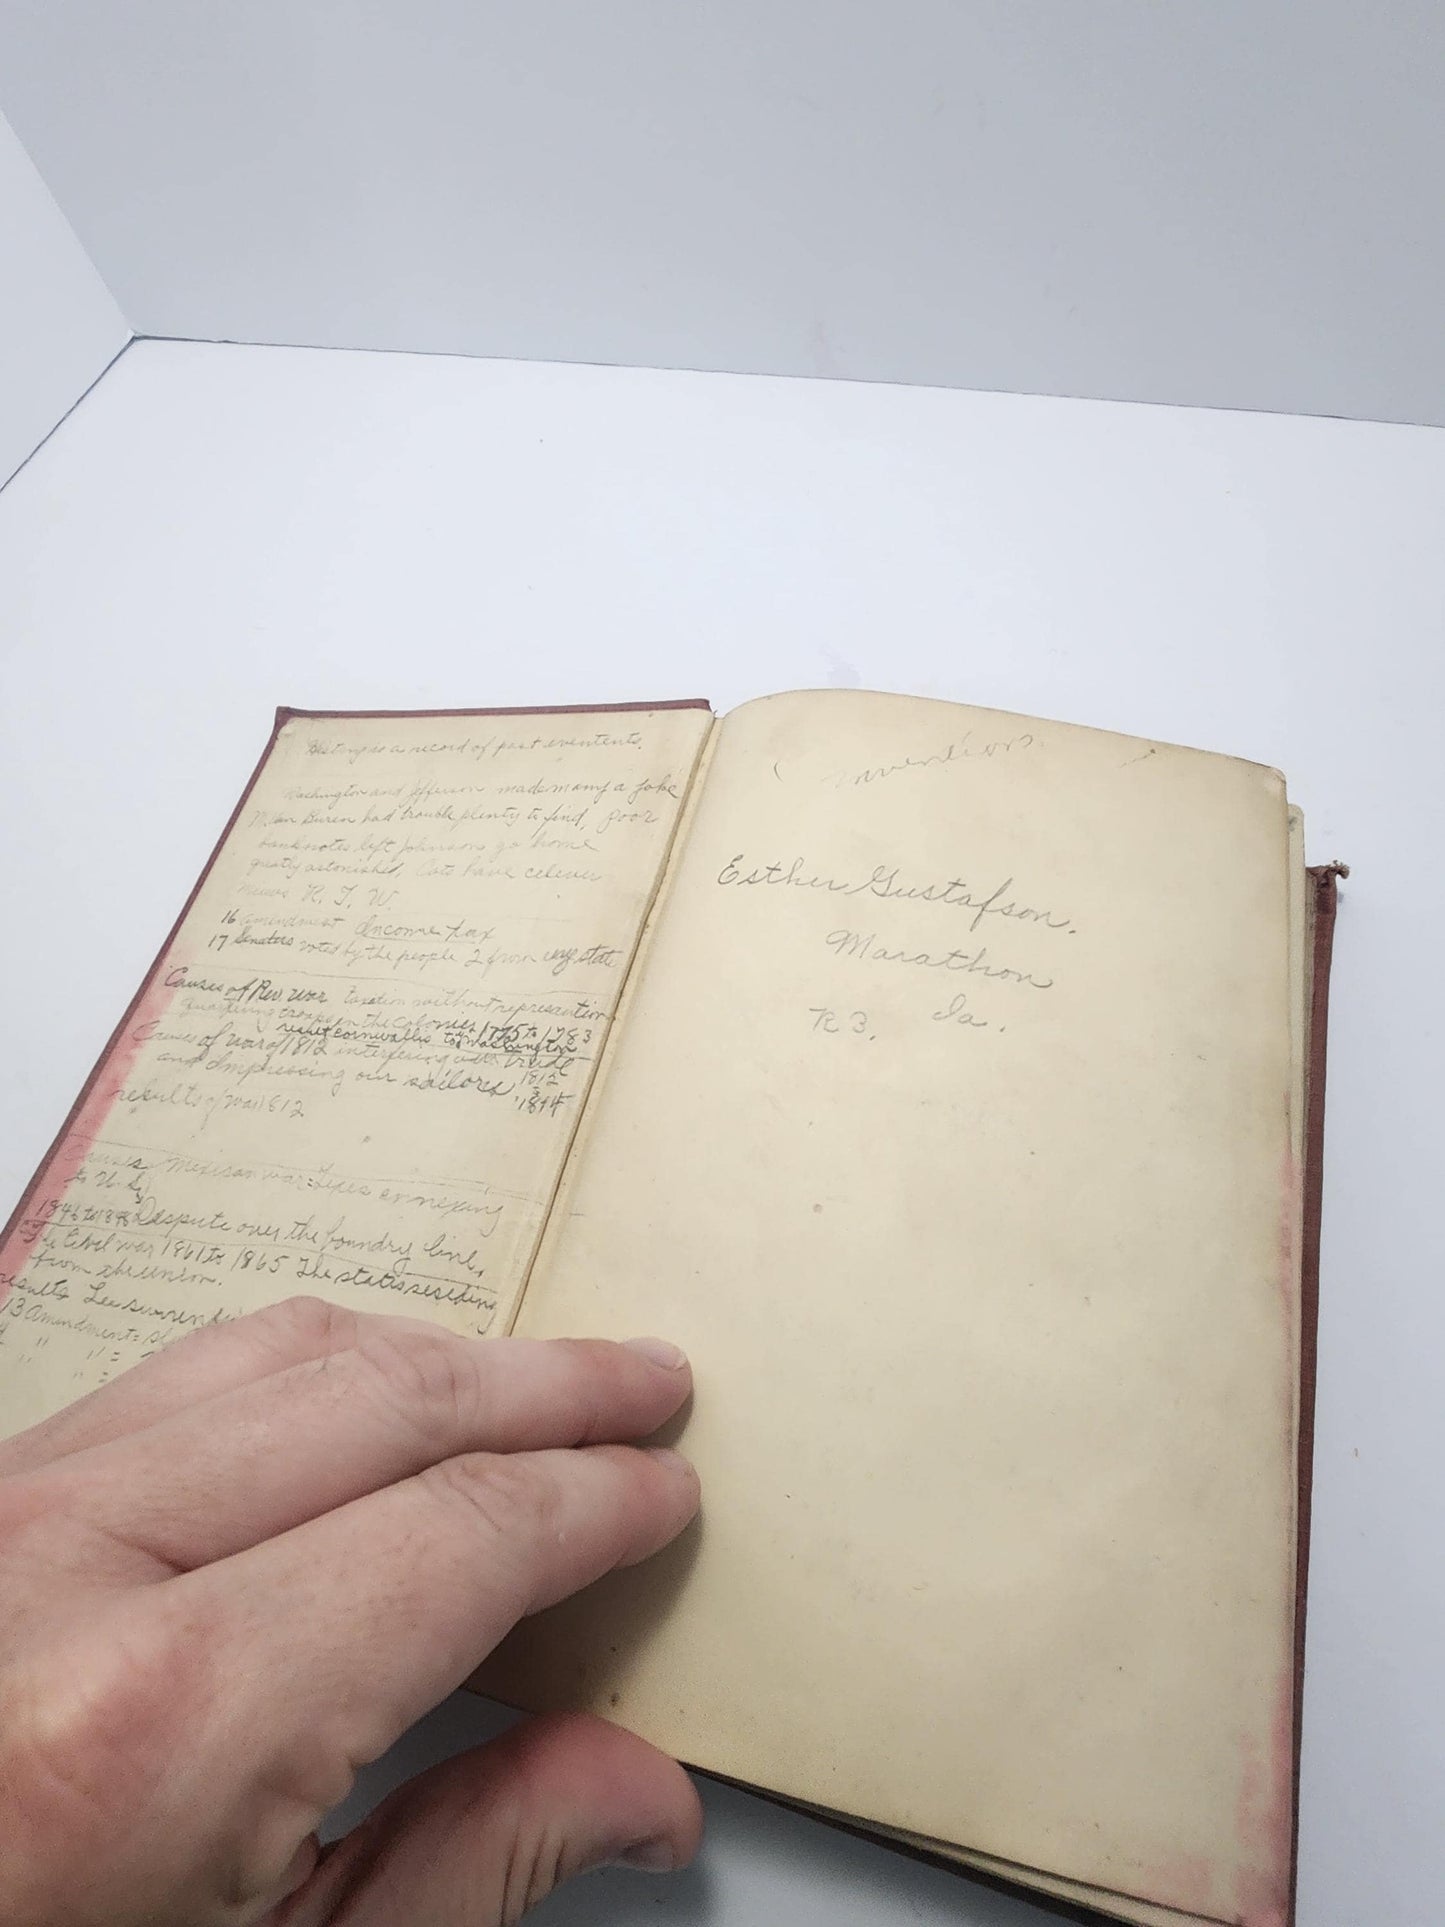 History is a record of past eventents.
Washington and Jefferson made many a joke
Van Buren had trouble plenty to find, poor
banknotes left Johnson go home
greatly astonished, Cats have celever
mews R. T. W.
16 amendment Income tax
17 Senators voted by the people 2 from evry state
Causes of Rev. war taxation without represantion
quartering troops in the colonies 1775 to 1783
result cornwallis to Washington
Causes of war of 1812 interfering with trade
and Impressing our sailores 1812
1814
results of war 1812
Causes Mexican war = Texes annexing
to U. S.
1846 to 1848 Despute over the boundry line.
The Civil war 1861 to 1865 The states seseding
from the union.
results Lee surren
13 Amendment =
" " =
" =
Inventions
Esther Gustafson.
Marathon
R 3, Ia.